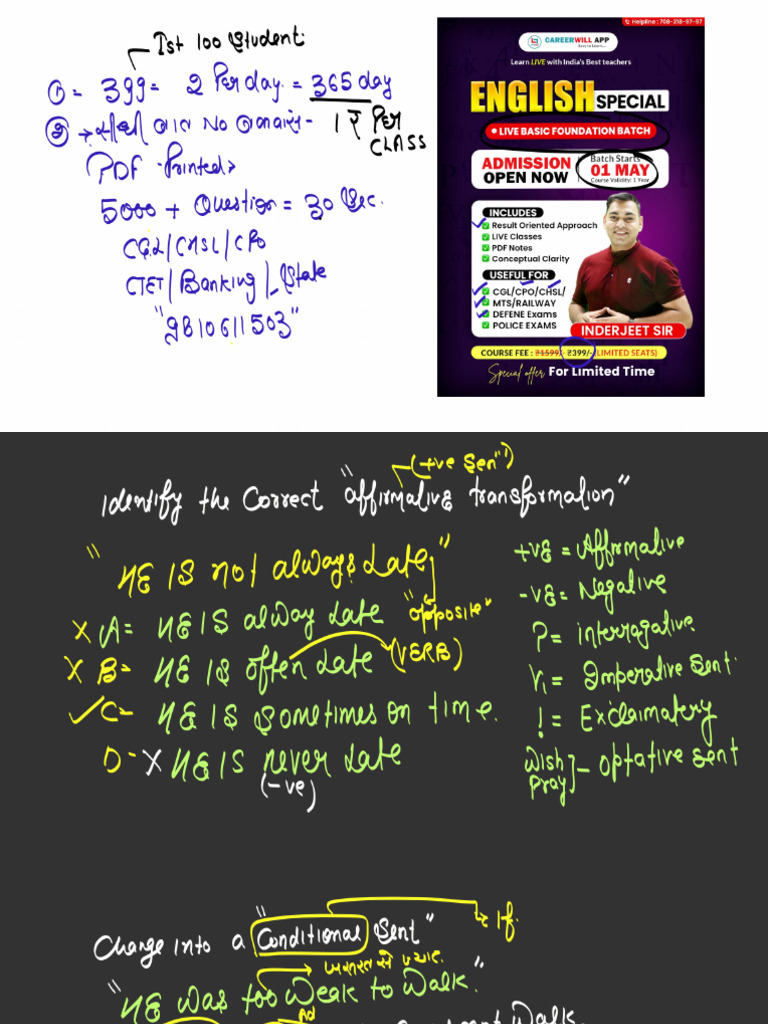 Ist 100 Student
① = 399 = 2 Per day = 365 day
② → सीधी बात No बकवास - 1 ₹ PER CLASS
PDF Printed
5000 + Question = 30 Sec.
CGL/CHSL/CPO
CTET/Banking/State
"9810611503"
Helpline : 708-218-97-97
CAREERWILL APP
Learn LIVE with India's Best teachers
ENGLISH SPECIAL
• LIVE BASIC FOUNDATION BATCH
ADMISSION OPEN NOW
Batch Starts
01 MAY
Course Validity: 1 Year
INCLUDES
Result Oriented Approach
LIVE Classes
PDF Notes
Conceptual Clarity
USEFUL FOR
CGL/CPO/CHSL/
MTS/RAILWAY
DEFENE Exams
POLICE EXAMS
INDERJEET SIR
COURSE FEE : ₹1599/- ₹399/- (LIMITED SEATS)
Special offer For Limited Time
(+ve Sen")
Identify the Correct "affirmative transformation"
"HE IS not always Late"
X A= HE IS alway Late "opposite"
X B- HE IS often Late (VERB)
✓ C- HE IS Sometimes on time.
D- X HE IS never Late
(-ve)
+VE = Affirmative
-VE = Negative
? = interrogative
V₁ = Imperative Sent.
! = Exclaimatery
Wish Pray] - Optative Sent
Change into a "Conditional Sent" If
"HE was too Weak to Walk."